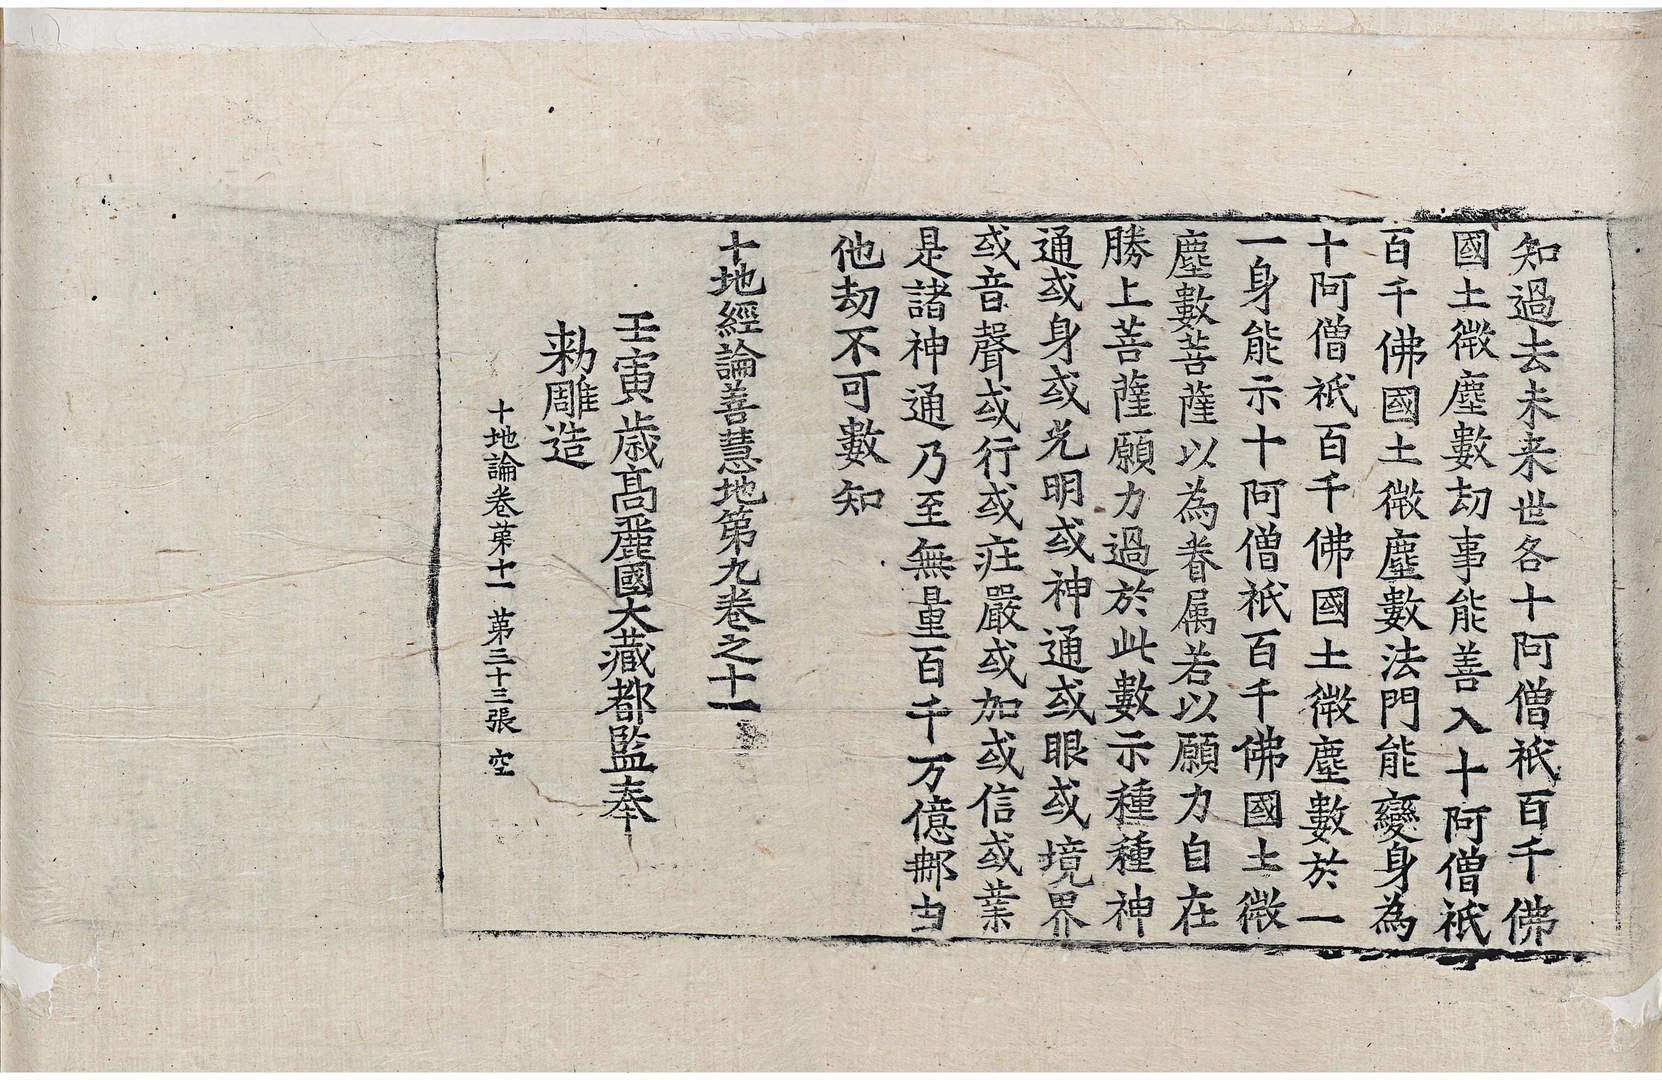 知過去未来世各十阿僧祇百千佛
國土微塵數劫事能善入十阿僧祇
百千佛國土微塵數法門能變身為
十阿僧祇百千佛國土微塵數於一
一身能示十阿僧祇百千佛國土微
塵數菩薩以為眷属若以願力自在
勝上菩薩願力過於此數示種種神
通或身或光明或神通或眼或境界
或音聲或行或莊嚴或加或信或業
是諸神通乃至無量百千万億那由
他劫不可數知
十地經論善慧地第九卷之十一
壬寅歳髙麗國大藏都監奉
勑雕造
十地論卷苐十一 苐三十三張 空